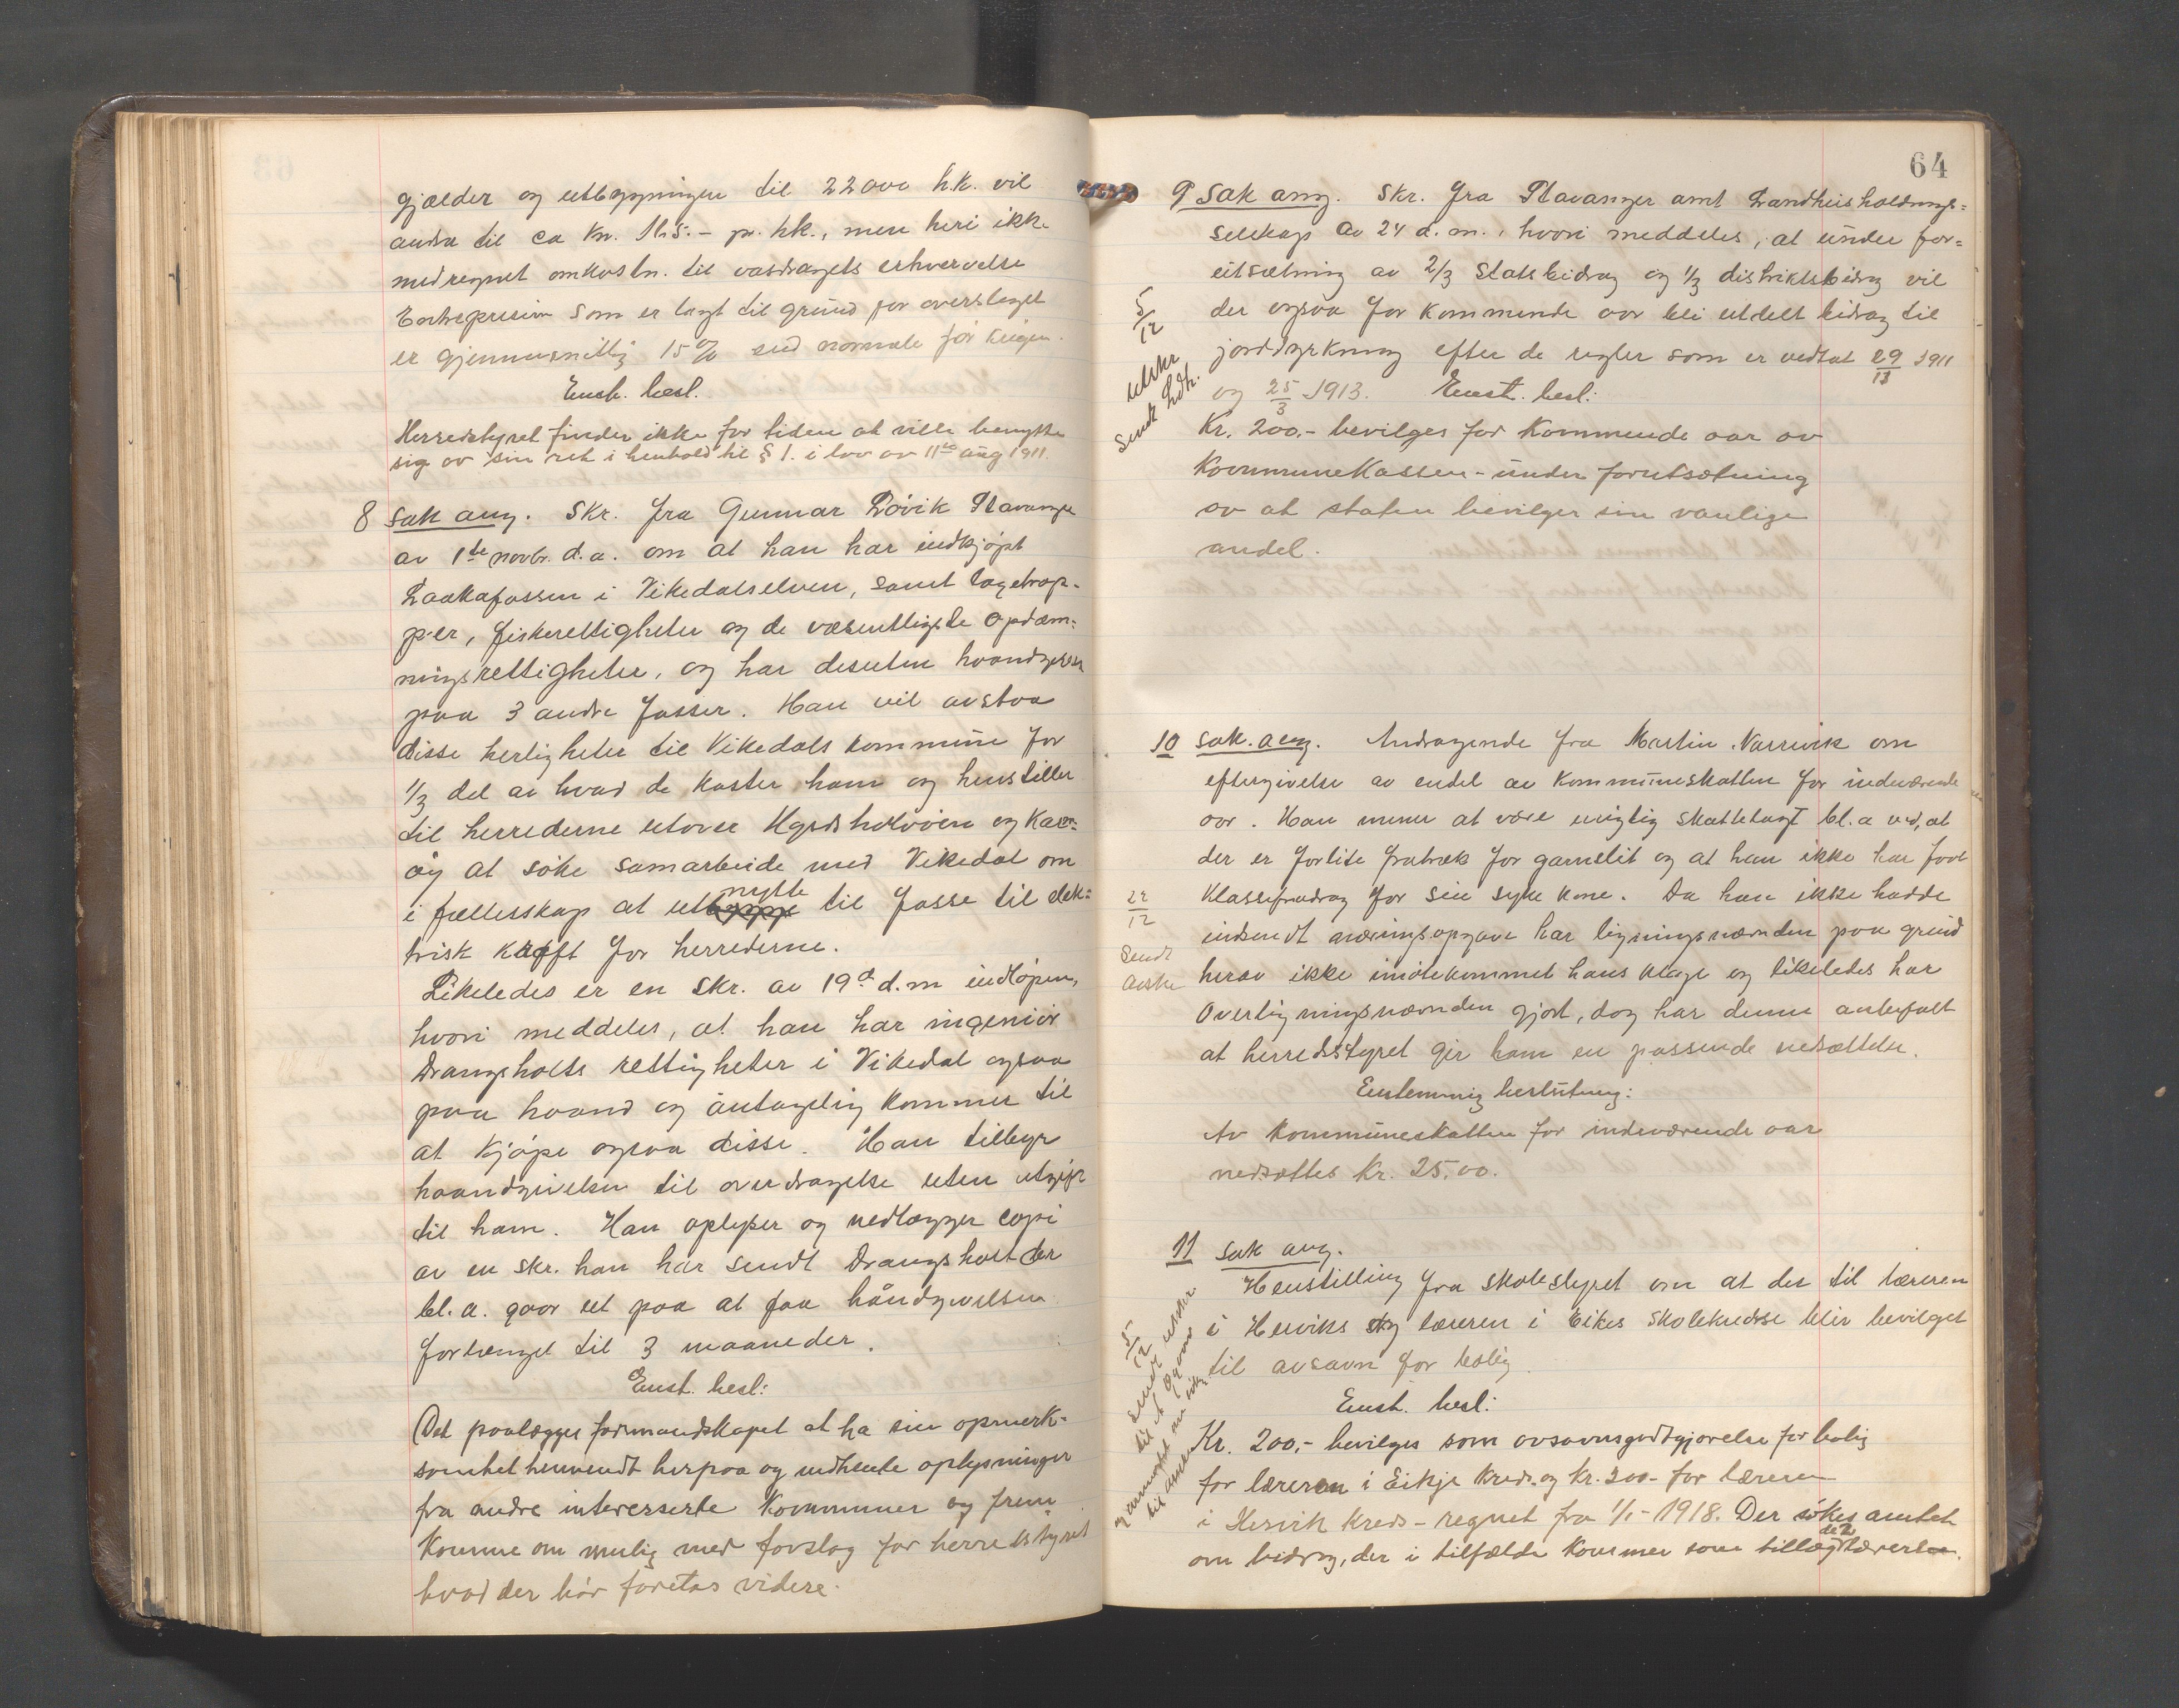 gjælder og utbygningen til 22000 hk. vil
andra til ca kr. 165.- pr. hk., men heri ikke
medregnet omkostn. til vasdragets erhvervelse
Entreprisen som er lagt til grund for overslaget
er gjennemsnittlig 15% end normale før krigen.
Enst. besl.
Herredstyret finder ikke for tiden at ville benytte
sig av sin ret i henhold til § 1. i lov av 11te aug 1911.
8 Sak ang. Skr. fra Gunnar Løvik Stavanger
av 1ste novbr. d.a. om at han har indkjøpt
Laakafossen i Vikedalselven, samt laxetrap-
per, fiskerettigheter og de væsentligste opdæm-
ningsrettigheter, og har desuten haandgivelse
paa 3 andre fosser. Han vil avstaa
disse herligheter til Vikedals kommune for
1/3 del av hvad de koster ham og henstiller
til herrederne utover Hgsdshalvøen og Karm-
øy at søke samarbeide med Vikedal om
i fællesskap at utnytte til fosse til elek-
trisk kraft for herrederne.
Likeledes er en skr. av 19de d.m indløpen,
hvori meddeles, at han har ingeniør
Drangsholts rettigheter i Vikedal ogsaa
paa haand og antagelig kommer til
at kjøpe ogsaa disse. Han tilbyr
haandgivelsen til overdragelse uten utgift
til ham. Han oplyser og vedlægger copi
av en skr. han har sendt Drangsholt der
bl.a. gaar ut paa at faa håndgivelsen
forlænget til 3 maaneder.
Enst. besl:
Det paalægges formandskapet at ha sin opmerk-
somhet henvendt herpaa og indhente oplysninger
fra andre interesserte kommuner og frem
komme om mulig med forslag for herredstyret
hvad der bør foretas videre.
64
9 Sak ang. Skr. fra Stavanger amt Landhusholdnings-
selskap av 24 d.m., hvori meddeles, at under for-
utsætning av 2/3 Statsbidrag og 1/3 distriktsbidrag vil
5/12
der ogsaa for kommende aar bli utdelt bidrag til
jorddyrkning efter de regler som er vedtat 29/13 1911
utskr
Sendt Ldh.
og 25/3 1913. Enst. besl:
Kr. 200.- bevilges for kommende aar av
Kommunekassen - under forutsætning
av at staten bevilger sin vanlige
andel.
10 Sak. ang. Andragende fra Martin Narrevik om
eftergivelse av endel av kommuneskatten for indeværende
aar. Han mener at være urigtig skattelagt bl.a ved, at
der er forlite fratræk for garnslit og at han ikke har faat
klassefradrag for sin syke kone. Da han ikke hadde
22/12
indsendt næringsopgave har ligningsnævnden paa grund
Sendt
herav ikke imøtekommet hans klage og likeledes har
Overligningsnævnden gjort, dog har denne anbefalt
at herredsstyret gir ham en passende nedsættelse.
Enstemmig beslutning:
Av kommuneskatten for indeværende aar
nedsættes Kr. 25,00.
11 Sak ang.
Henstilling fra skolestyret om at der til læreren
i Herviks og læreren i Eikes skolekredse blir bevilget
5/12
til avsavn for bolig.
Enst. besl:
Kr. 200,- bevilges som avsavnsgodtgjørelse for bolig
for læreren i Eikje kreds og kr. 200- for læreren
i Hervik kreds - regnet fra 1/1-1918. Der søkes amtet
om bidrag, der i tilfælde kommer som tillæg den læreren.